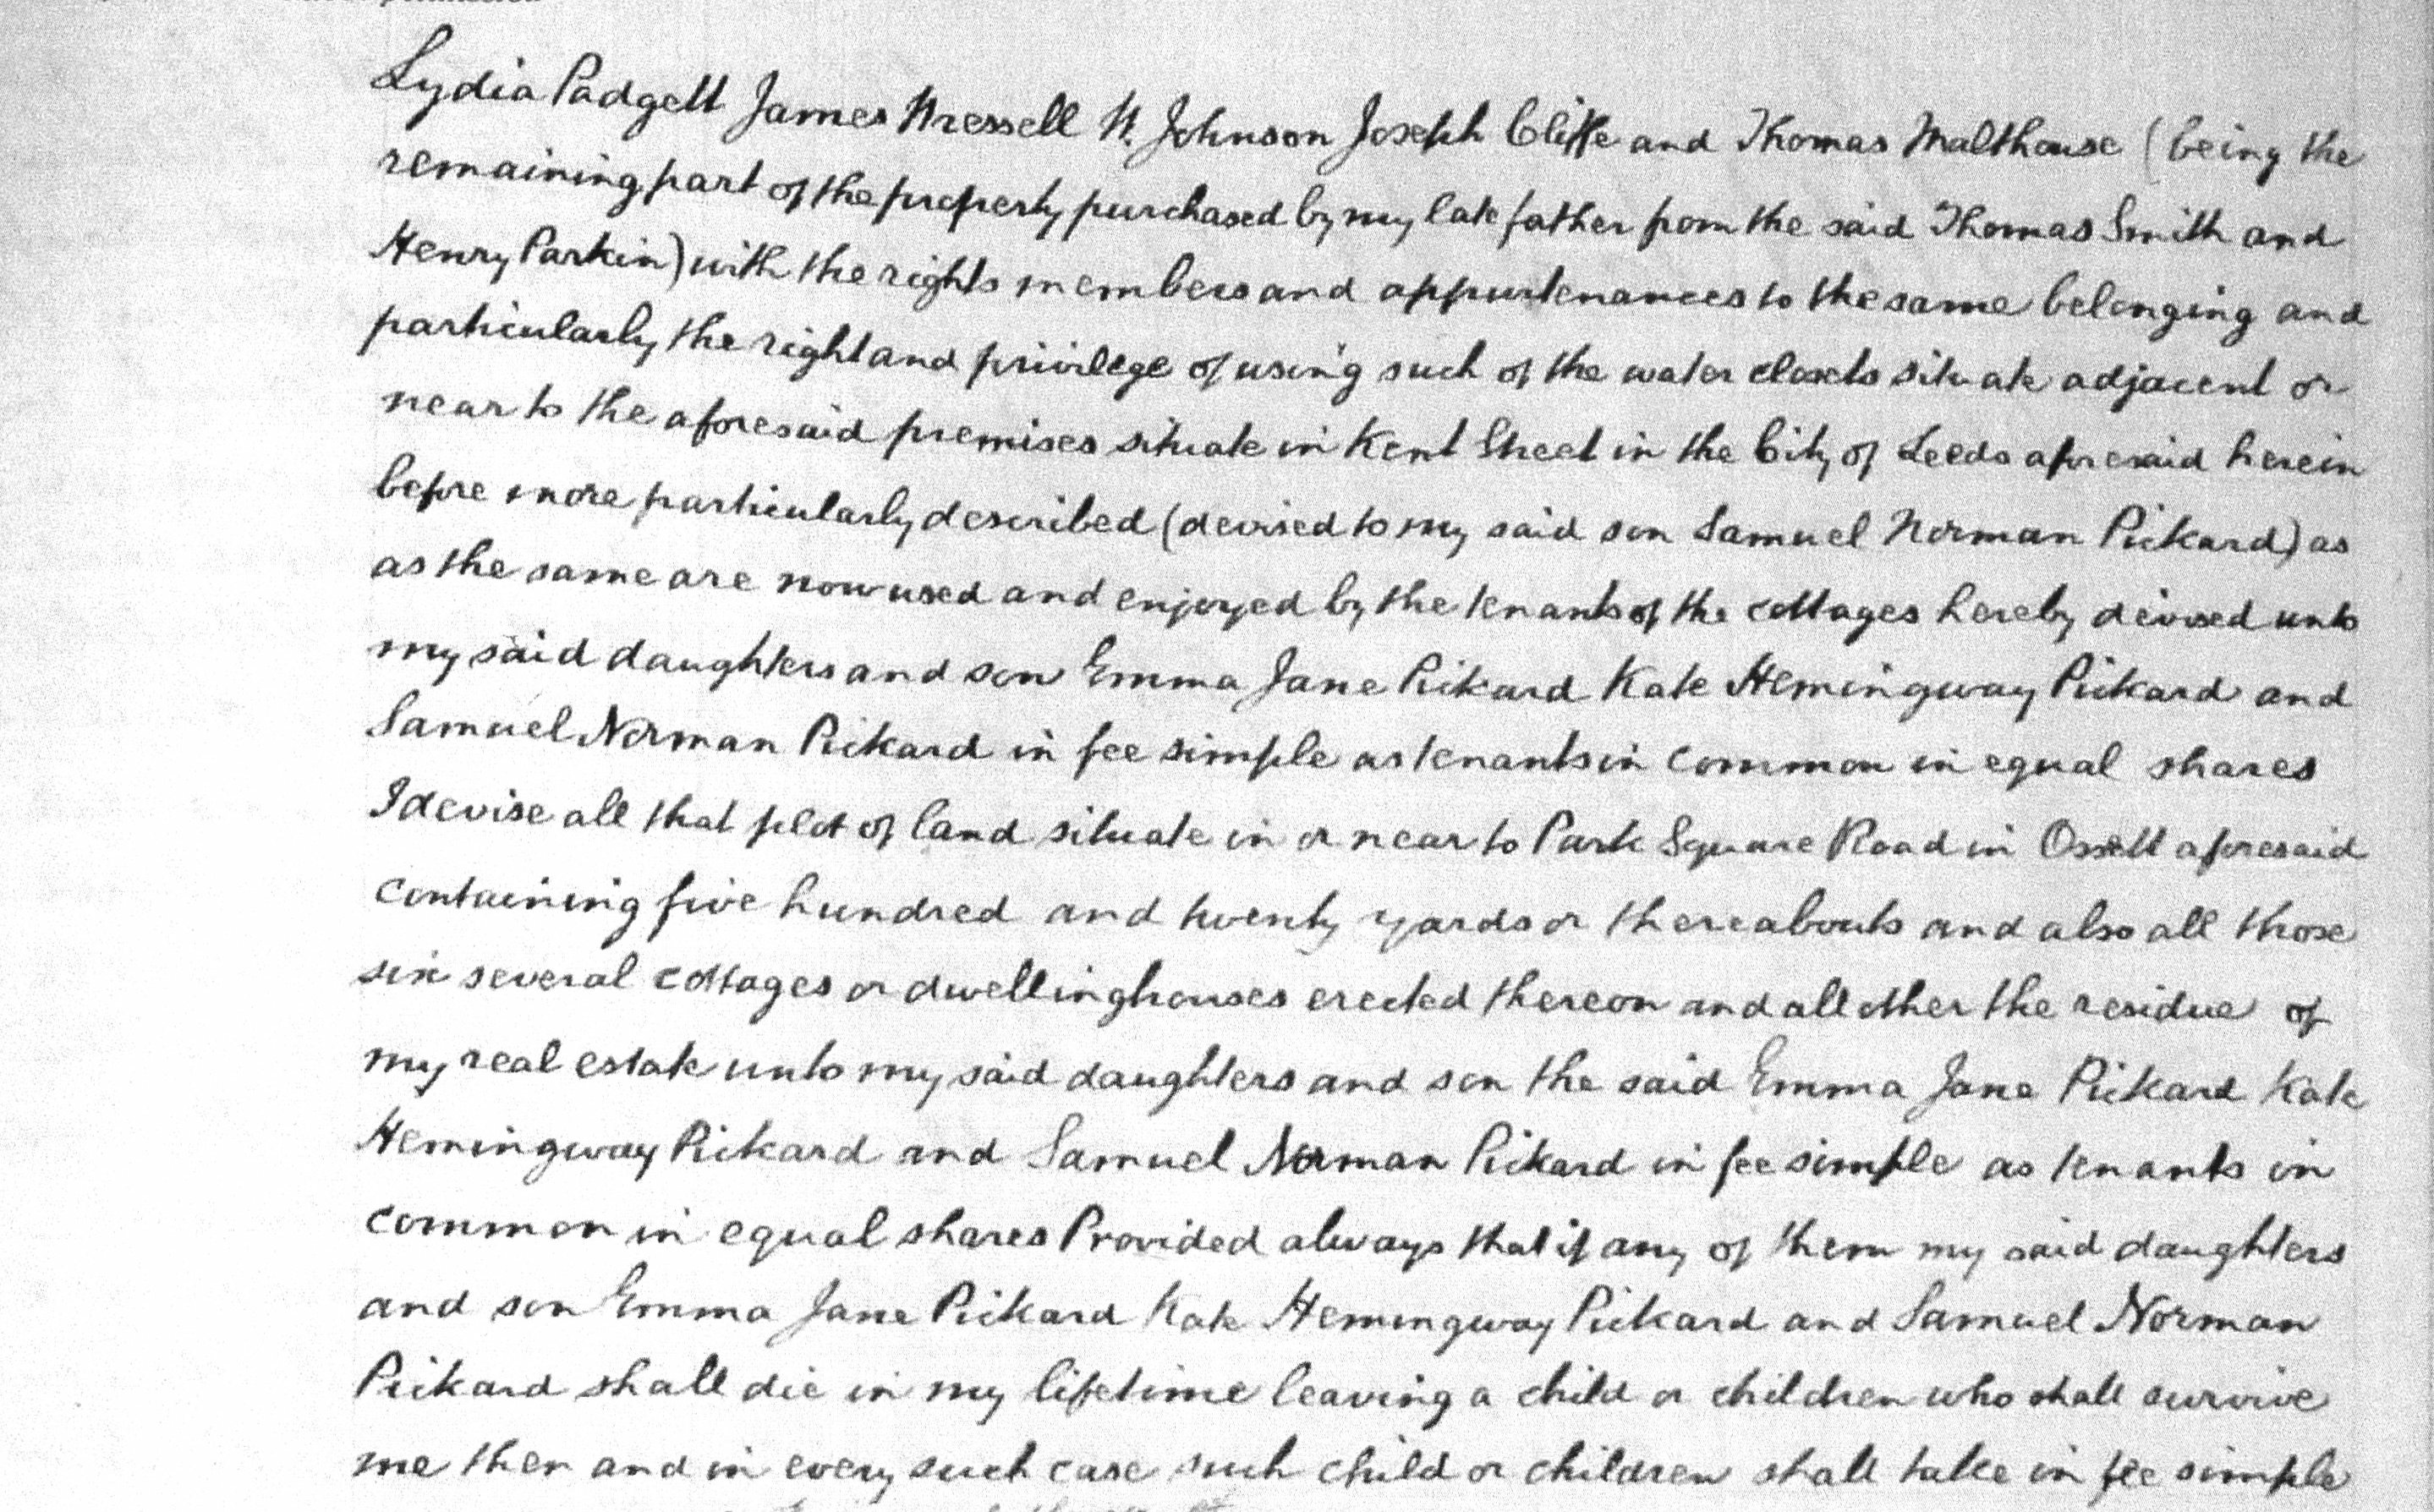 Lydia Padgett James Wressell W. Johnson Joseph Cliffe and Thomas Malthouse (being the
remaining part of the property purchased by my late father from the said Thomas Smith and
Henry Parkin) with the rights members and appurtenances to the same belonging and
particularly the right and privilege of using such of the water closets situate adjacent or
near to the aforesaid premises situate in Kent Street in the City of Leeds aforesaid herein
before more particularly described (devised to my said son Samuel Norman Pickard) as
as the same are now used and enjoyed by the tenants of the cottages hereby devised unto
my said daughters and son Emma Jane Pickard Kate Hemingway Pickard and
Samuel Norman Pickard in fee simple as tenants in common in equal shares
I devise all that plot of land situate in or near to Park Square Road in Ossett aforesaid
containing five hundred and twenty yards or thereabouts and also all those
six several cottages or dwellinghouses erected thereon and all other the residue of
my real estate unto my said daughters and son the said Emma Jane Pickard Kate
Hemingway Pickard and Samuel Norman Pickard in fee simple as tenants in
common in equal shares Provided always that if any of them my said daughters
and son Emma Jane Pickard Kate Hemingway Pickard and Samuel Norman
Pickard shall die in my lifetime leaving a child or children who shall survive
me then and in every such case such child or children shall take in fee simple